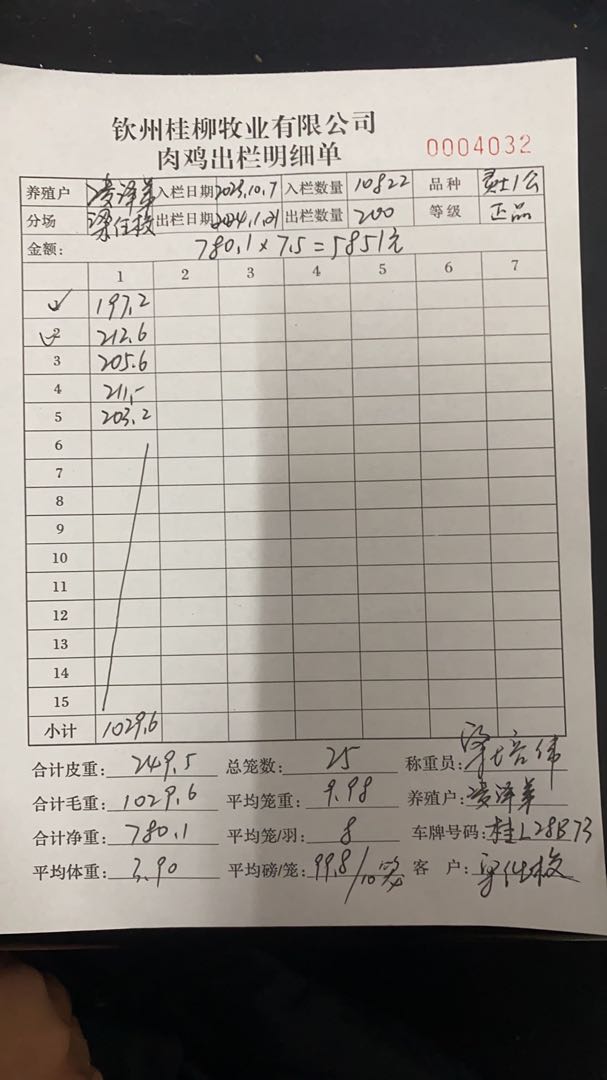 钦州桂柳牧业有限公司
肉鸡出栏明细单
0004032
养殖户 凌泽 入栏日期 2023.10.7 入栏数量 10822 品种
分场 梁仕 出栏日期 2024.1.21 出栏数量 200 等级 正品
金额: 780.1×7.5=5851元
1 2 3 4 5 6 7
1 197.2
2 212.6
3 205.6
4 211,-
5 203.2
6
7
8
9
10
11
12
13
14
15
小计 1029.6
合计皮重: 249.5 总笼数: 25 称重员: 培伟
合计毛重: 1029.6 平均笼重: 9.98 养殖户: 凌泽
合计净重: 780.1 平均笼/羽: 8 车牌号码: 桂L28B73
平均体重: 3.90 平均磅/笼: 99.8/10 客 户: 梁仕